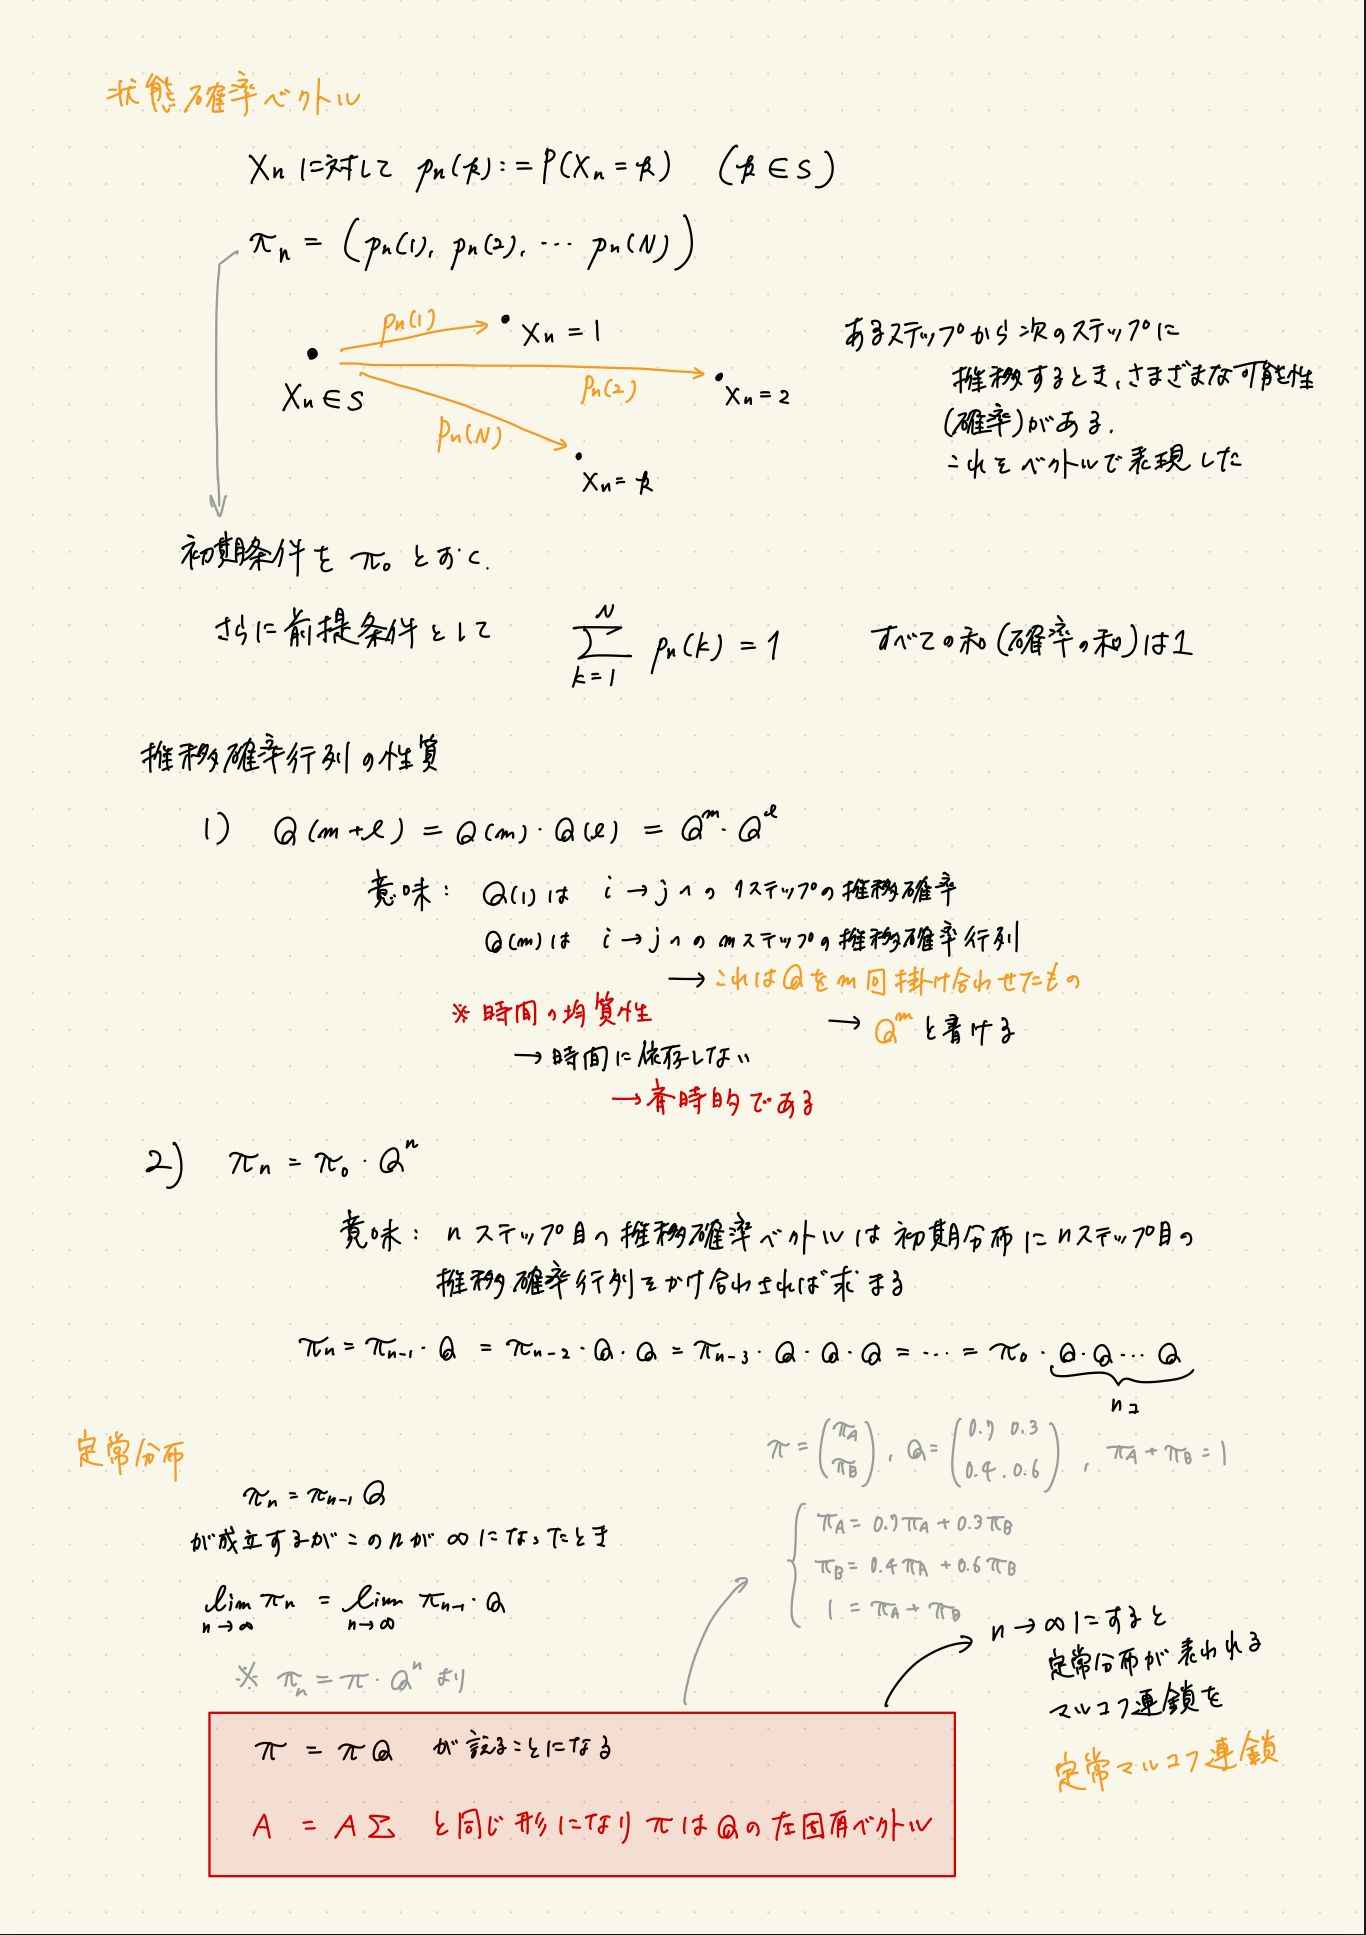 状態確率ベクトル
Xn に対して pn(k) := P(Xn = k) (k ∈ S)
πn = (pn(1), pn(2), … pn(N))
pn(1)
Xn = 1
Xn ∈ S
pn(2)
Xn = 2
pn(N)
Xn = k
あるステップから次のステップに
推移するとき、さまざまな可能性
(確率)がある.
これをベクトルで表現した
初期条件を π₀ とおく.
さらに前提条件として
N
∑ pn(k) = 1
k=1
すべての和(確率の和)は1
推移確率行列の性質
1) Q(m+ℓ) = Q(m)・Q(ℓ) = Q^m・Q^ℓ
意味: Q(1)は i→jへの1ステップの推移確率
Q(m)は i→jへのmステップの推移確率行列
→ これはQをm回掛け合わせたもの
→ Q^m と書ける
※時間の均質性
→時間に依存しない
→斉時的である
2) πn = π₀・Q^n
意味: nステップ目の推移確率ベクトルは初期分布にnステップ目の
推移確率行列をかけ合わされば求まる
πn = πn-1・Q = πn-2・Q・Q = πn-3・Q・Q・Q = … = π₀・Q・Q…Q
nコ
定常分布
πn = πn-1 Q
が成立するがこのnが∞になったとき
lim πn = lim πn-1・Q
n→∞ n→∞
※ πn = π・Q^n より
π = (πA πB), Q = (0.7 0.3
0.4. 0.6), πA + πB = 1
πA = 0.7πA + 0.3πB
πB = 0.4πA + 0.6πB
1 = πA + πB
n→∞にすると
定常分布が表われる
マルコフ連鎖を
定常マルコフ連鎖
π = πQ が言えることになる
A = AΣ と同じ形になり πはQの左固有ベクトル